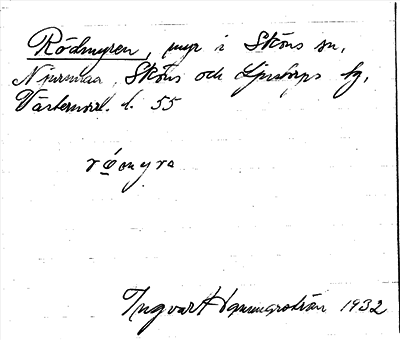 Rödmyren, myr i Sköns sn,
Njurunda, Sköns och Ljustorps tg,
Västernorrl. l. 55
rǿmyra
Ingvar Hammarström 1932